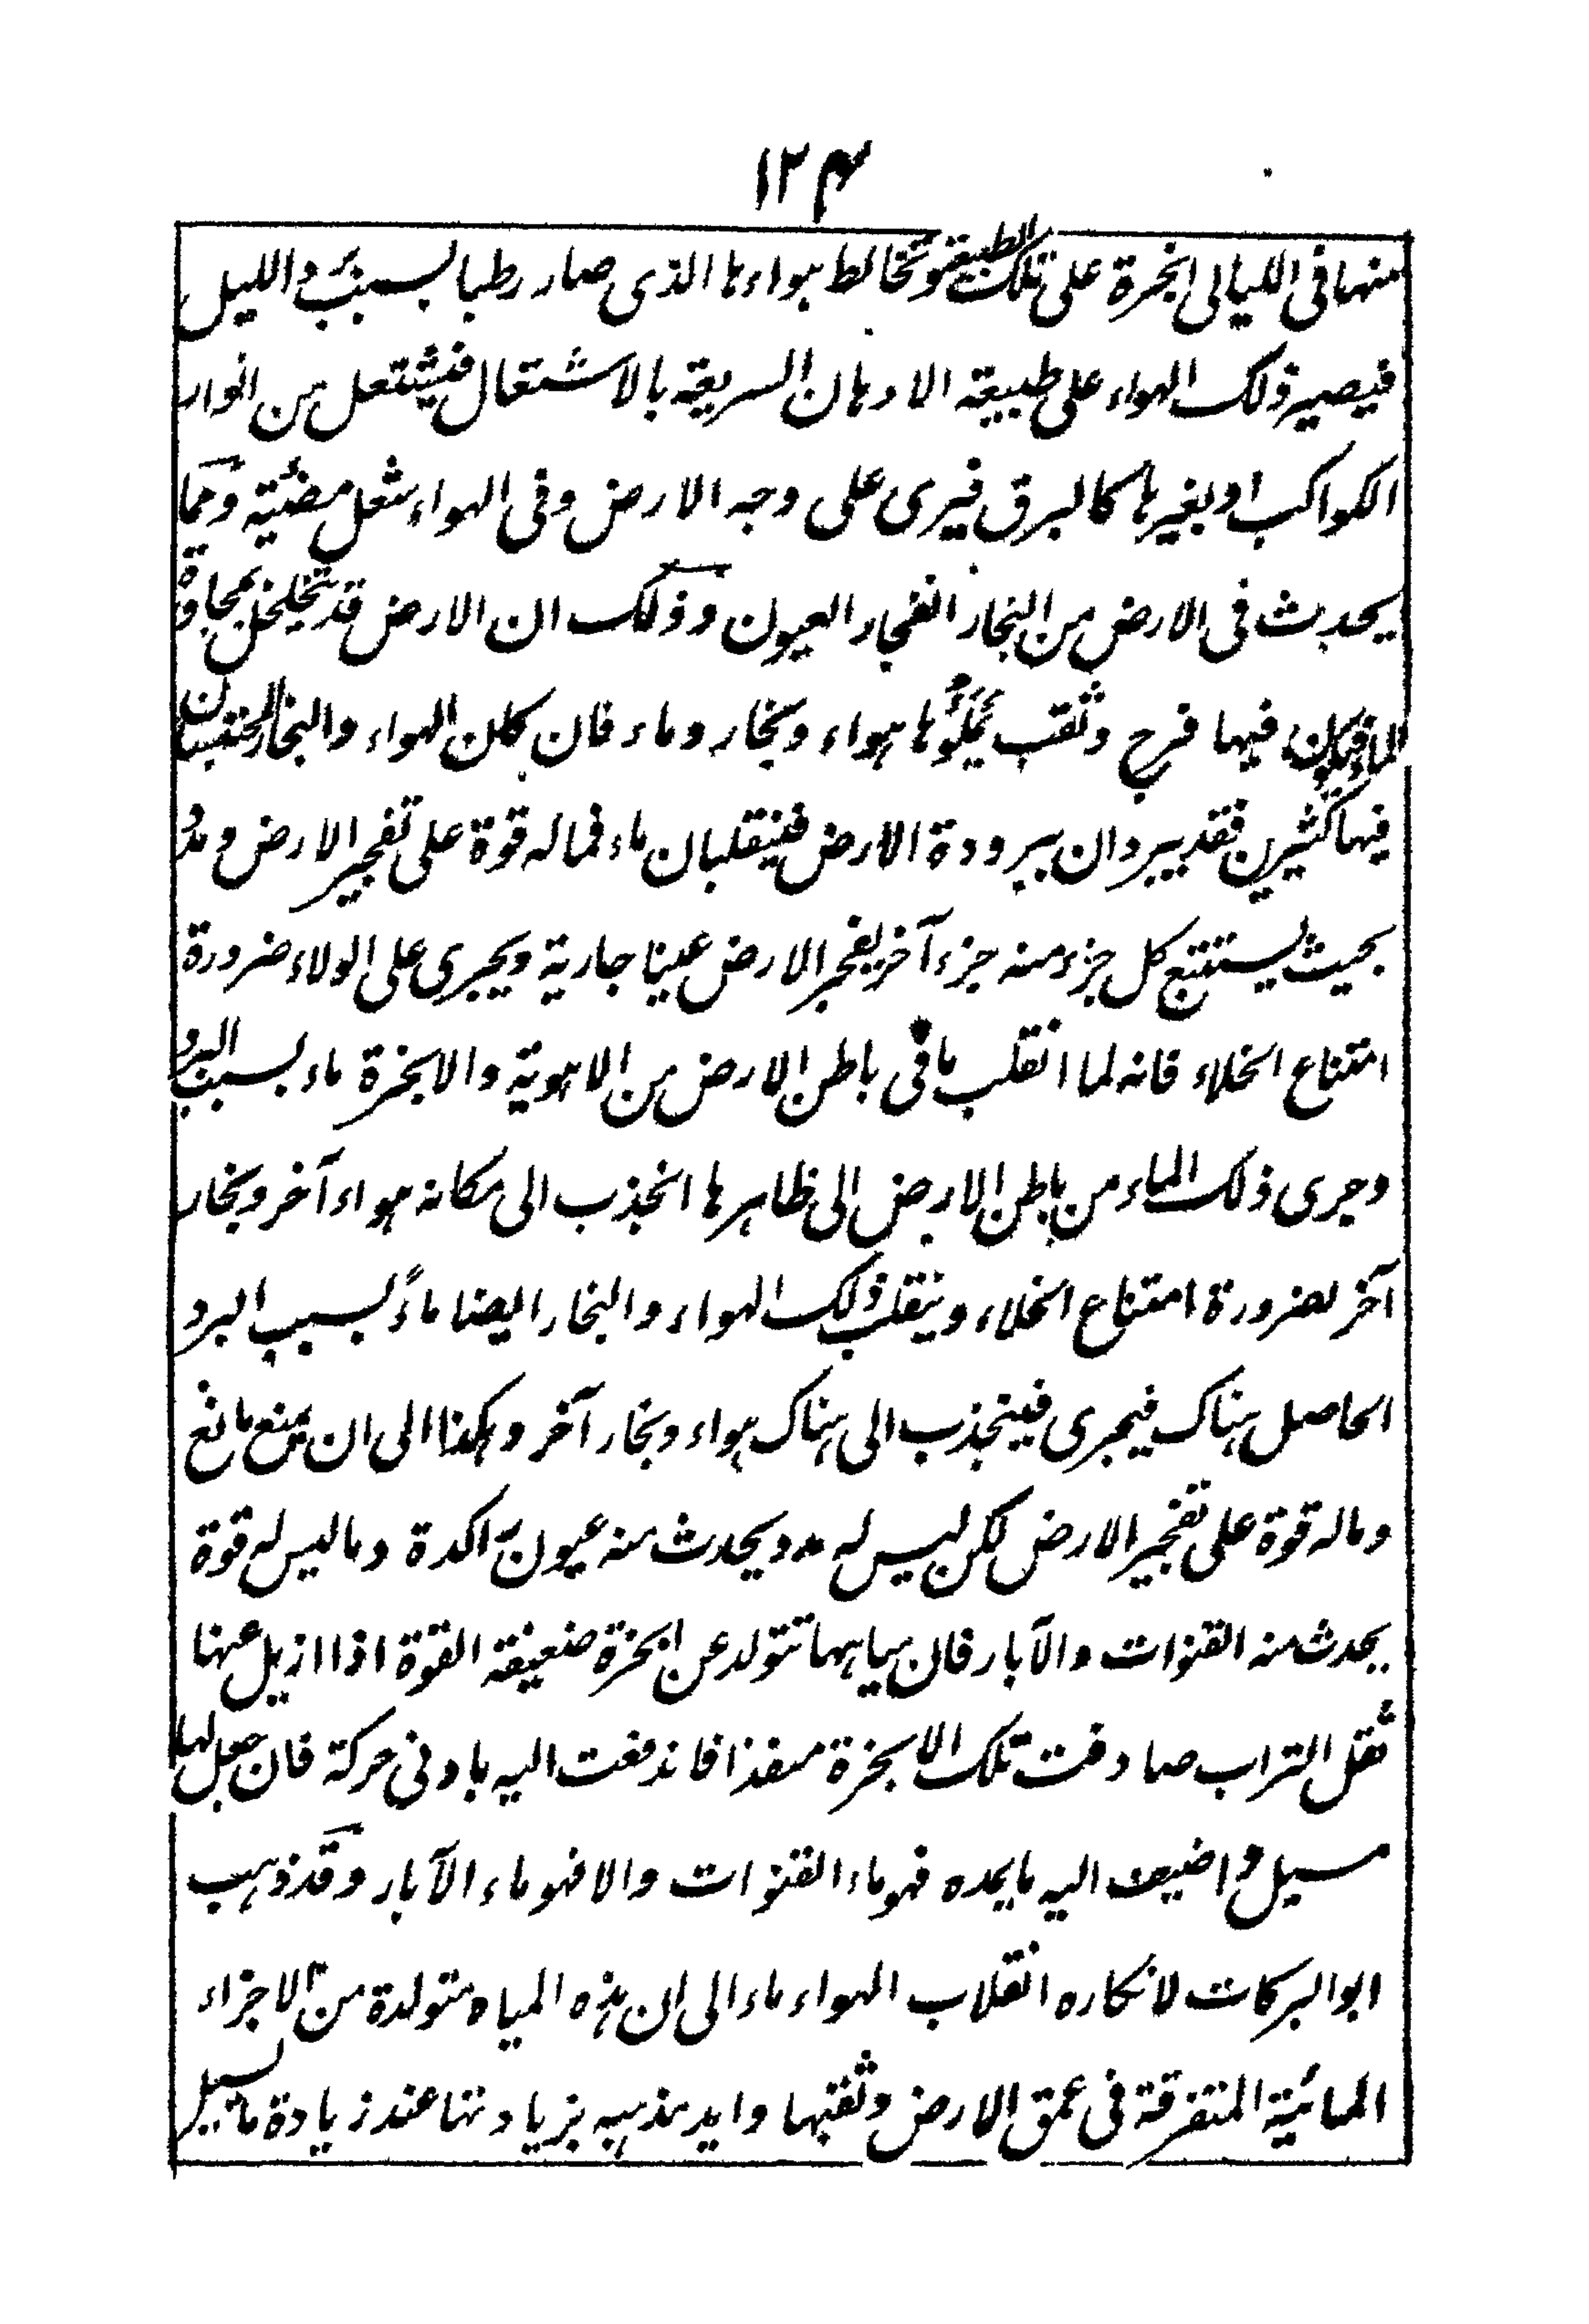 ١٢٤
منها فى الليالى ابخرة على تلك الطبيعة وتخالط هواءها الذى صار رطبا بسبب برد الليل
فيصير ذلك الهواء على طبيعة الادهان السريعة بالاشتعال فيشتعل من انوار
الكواكب او بغيرها كالبرق فيرى على وجه الارض وفى الهواء شعل مضيئة ومما
يحدث فى الارض من البخار انفجار العيون وذلك ان الارض قد تخلخل بمجاورة
الماء فيكون فيها فرج وثقب يَمْلَؤُها هواء وبخار وماء فان كان الهواء والبخار المحتبسان
فيها كثيرين فقد يبردان ببرودة الارض فينقلبان ماء فما له قوة على تفجير الارض ومدد
بحيث يستتبع كل جزء منه جزء آخر يفجر الارض عينا جارية ويجرى على الولاء ضرورة
امتناع الخلاء فانه لما انقلب ما فى باطن الارض من الاهوية والابخرة ماء بسبب البرد
وجرى ذلك الماء من باطن الارض الى ظاهرها انجذب الى مكانه هواء آخر وبخار
آخر لضرورة امتناع الخلاء وينقلب ذلك الهواء والبخار ايضا ماءً بسبب البرد
الحاصل هناك فيجرى فينجذب الى هناك هواء وبخار آخر وهكذا الى ان يمنع مانع
وما له قوة على تفجير الارض لكن ليس له مدد يحدث منه عيون راكدة وما ليس له قوة
يحدث منه القنوات والآبار فان مياهها تتولد عن ابخرة ضعيفة القوة اذا ازيل عنها
ثقل التراب صادفت تلك الابخرة منفذا فاندفعت اليه بادنى حركة فان جعل لها
مسيل واضيف اليه ما يمده فهو ماء القنوات والا فهو ماء الآبار وقد ذهب
ابو البركات لانكاره انقلاب الهواء ماء الى ان هذه المياه متولدة من الاجزاء
المائية المتفرقة فى عمق الارض وثقبها وايد مذهبه بزيادتها عند زيادة ما يسيل